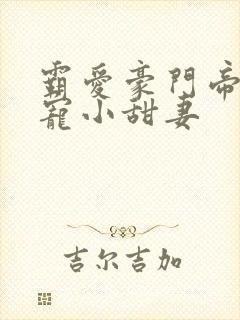 霸愛豪門帝
寵小甜妻
吉尔吉加